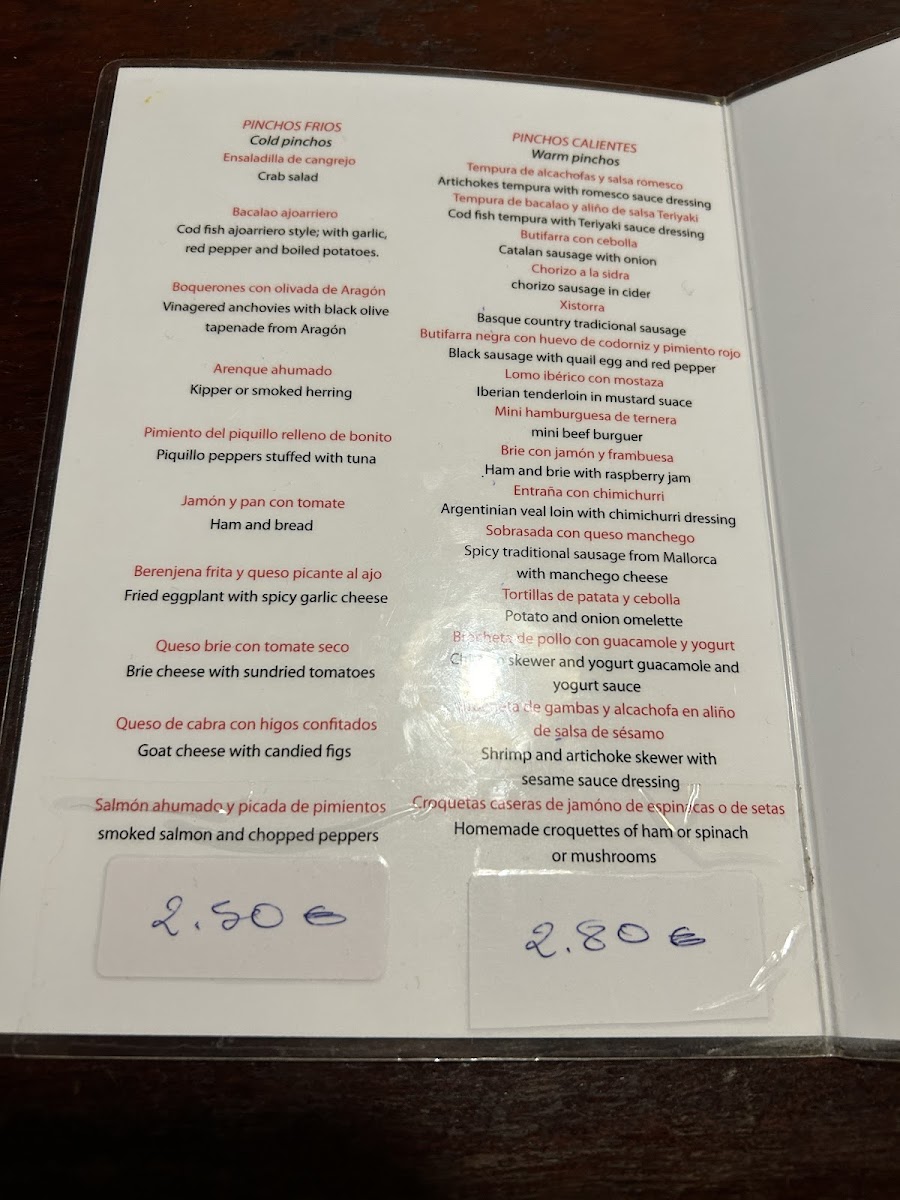 PINCHOS FRIOS
Cold pinchos
Ensaladilla de cangrejo
Crab salad
Bacalao ajoarriero
Cod fish ajoarriero style; with garlic,
red pepper and boiled potatoes.
Boquerones con olivada de Aragón
Vinagered anchovies with black olive
tapenade from Aragón
Arenque ahumado
Kipper or smoked herring
Pimiento del piquillo relleno de bonito
Piquillo peppers stuffed with tuna
Jamón y pan con tomate
Ham and bread
Berenjena frita y queso picante al ajo
Fried eggplant with spicy garlic cheese
Queso brie con tomate seco
Brie cheese with sundried tomatoes
Queso de cabra con higos confitados
Goat cheese with candied figs
Salmón ahumado y picada de pimientos
smoked salmon and chopped peppers
2.50 €
PINCHOS CALIENTES
Warm pinchos
Tempura de alcachofas y salsa romesco
Artichokes tempura with romesco sauce dressing
Tempura de bacalao y aliño de salsa Teriyaki
Cod fish tempura with Teriyaki sauce dressing
Butifarra con cebolla
Catalan sausage with onion
Chorizo a la sidra
chorizo sausage in cider
Xistorra
Basque country tradicional sausage
Butifarra negra con huevo de codorniz y pimiento rojo
Black sausage with quail egg and red pepper
Lomo ibérico con mostaza
Iberian tenderloin in mustard suace
Mini hamburguesa de ternera
mini beef burguer
Brie con jamón y frambuesa
Ham and brie with raspberry jam
Entraña con chimichurri
Argentinian veal loin with chimichurri dressing
Sobrasada con queso manchego
Spicy traditional sausage from Mallorca
with manchego cheese
Tortillas de patata y cebolla
Potato and onion omelette
de pollo con guacamole y yogurt
skewer and yogurt guacamole and
yogurt sauce
de gambas y alcachofa en aliño
de salsa de sésamo
Shrimp and artichoke skewer with
sesame sauce dressing
Croquetas caseras de jamóno de espinacas o de setas
Homemade croquettes of ham or spinach
or mushrooms
2.80 €